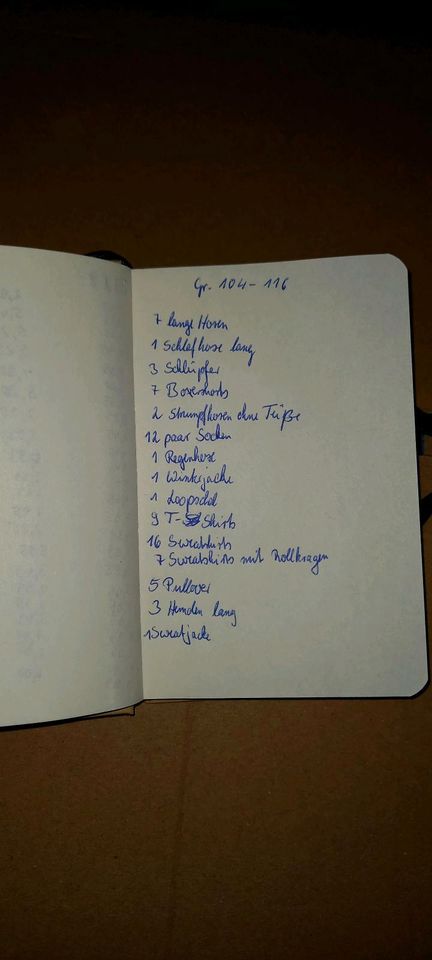 Gr. 104 - 116
7 lange Hosen
1 Schlafhose lang
3 Schlüpfer
7 Boxershorts
2 Strumpfhosen ohne Füße
12 paar Socken
1 Regenhose
1 Winterjacke
1 Loopschal
9 T-Shirts
16 Sweatshirts
7 Sweatshirts mit Rollkragen
5 Pullover
3 Hemden lang
1 Sweatjacke